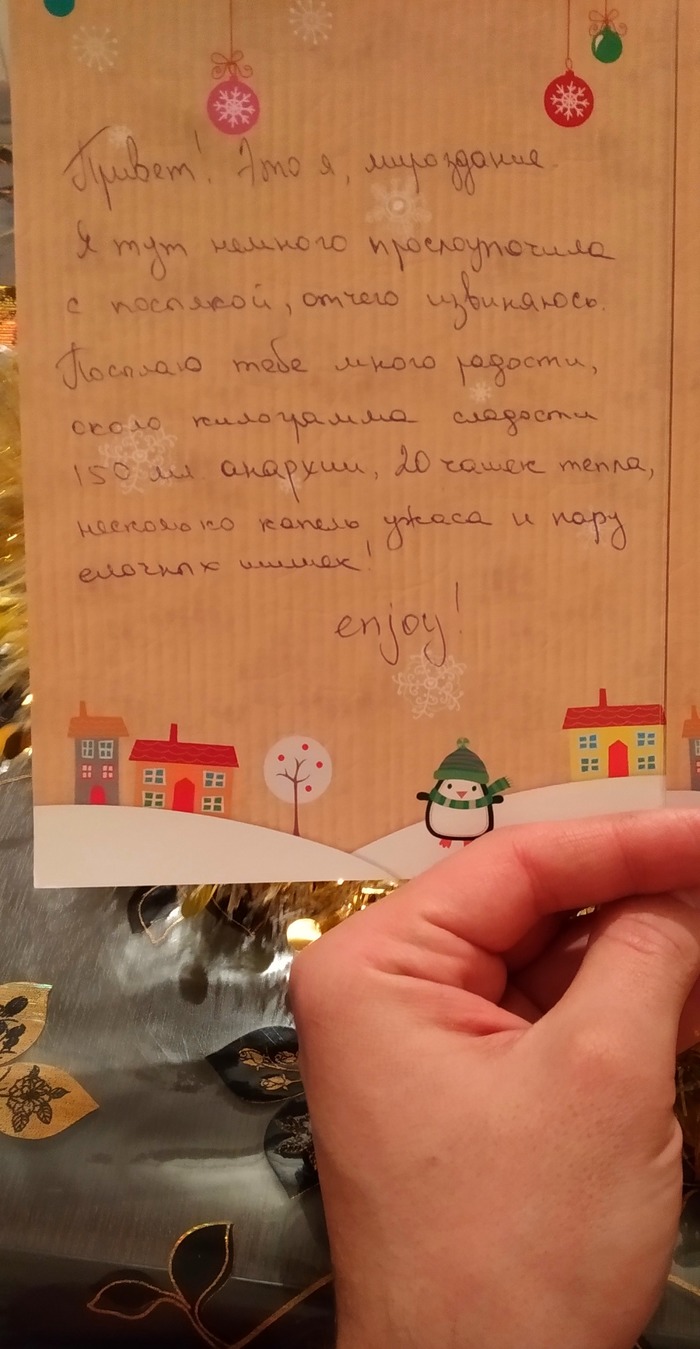 Привет! Это я, мироздание.
Я тут немного прослоупочила
с посылкой, отчего извиняюсь.
Посылаю тебе много радости,
около килограмма сладости
150 мл анархии, 20 чашек тепла,
несколько капель ужаса и пару
елочных шишек!
enjoy!